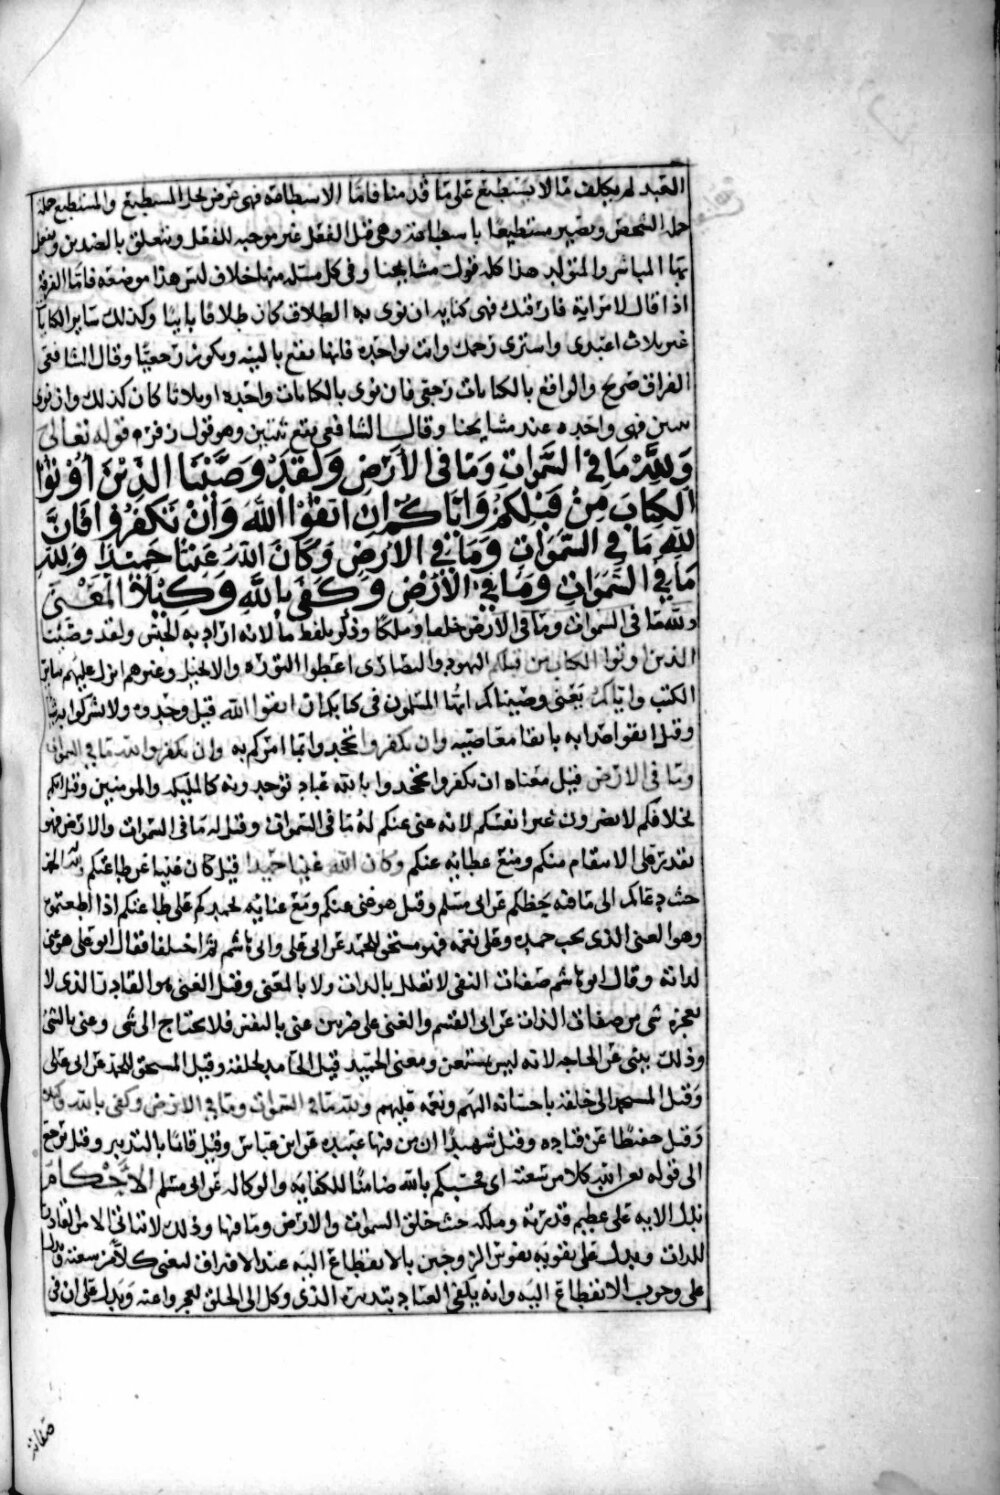 العبد لم يكلف ما لا يستطيع على ما قدمنا فاما الاستطاعة فهي عرض لحل المستطيع والمستطيع جملة
جملة الشخص ويصير مستطيعا باستطاعة وهي قبل الفعل غير موجبه للفعل ويتعلق بالضدين ويفعل
بها المباشر والمتولد هذا كله قول مشايخنا وفي كل مسئله منها خلاف ليس هذا موضعه فاما الفرقة
اذا قال لامراته فارقتك فهي كنايه ان نوى به الطلاق كان طلاقا باينا وكذلك ساير الكنايات
غير ثلاث اعتدى واستبرى رحمك وانت واحده فانها يقع بالنيه ويكون رجعيا وقال الشافعي
الفراق صريح والواقع بالكنايات رجعي فان نوى بالكنايات واحده او ثلاثا كان كذلك وان نوى
ثنتين فهي واحده عند مشايخنا وقال الشافعي يقع ثنتين وهو قول زفر قوله تعالى
ولله ما في السموات وما في الارض ولقد وصينا الذين اوتوا
الكتاب من قبلكم واياكم ان اتقوا الله وان تكفروا فان
لله ما في السموات وما في الارض وكان الله غنيا حميدا ولله
ما في السموات وما في الارض وكفى بالله وكيلا المعنى
ولله ما في السموات وما في الارض خلقا وملكا وذكر بلفظ ما لانه اراد به الجنس ولقد وصينا
الذين اوتوا الكتاب من قبلكم اليهود والنصارى اعطوا التوراه والانجيل وغيرهم انزل عليهم ساير
الكتب واياكم يعني وصيناكم ايها المسلمون في كتابكم ان اتقوا الله قيل وحدوه ولا تشركوا به شيا
وقيل اتقوا عذابه باتقا معاصيه وان تكفروا تجحدوا بما امركم به وان تكفروا لله ما في السموات
وما في الارض قيل معناه ان تكفروا تجحدوا بالله عباد توحدونه كالمليكه والمومنين وقيل انكم
بخلافكم لا تضرون غير انفسكم لانه غني عنكم له ما في السموات وقيل له ما في السموات والارض فهو
يقدر على الانتقام منكم ومنع عطايه عنكم وكان الله غنيا حميدا قيل كان غنيا عن طاعتكم وله الحمد
حيث دعاكم الى ما فيه حظكم عن ابي مسلم وقيل هو غني عنكم ومع غنايه يحمدكم على طاعتكم اذا اطعتموه
وهو الغني الذي يجب حمده وعلى نعمه فهو مستحق للحمد عن ابي علي وابي هاشم ثم اختلفا فقال ابو علي هو غني
لذاته وقال ابو هاشم صفات النفي لا تعلل بالذات ولا بالمعنى وقيل الغني هو القادر الذي لا
يعجزه شي من صفات الذات عن ابي القسم والغنى على ضربين غنى بالنفس فلا يحتاج الى شي وغنى بالشي
وذلك ينبي عن الحاجه لانه ليس يستغن ومعنى الحميد قيل الحامد لخلقه وقيل المستحق للحمد عن ابي علي
وقيل المستحمد الى خلقه باحسانه اليهم ونعمه قبلهم ولله ما في السموات وما في الارض وكفى بالله وكيلا
وقيل حفيظا عن قتاده وقيل شهيدا ان من فيها عبيده عن ابن عباس وقيل قائما بالتدبير وقيل ترجع
الى قوله يغن الله كلا من سعته اي حسبكم بالله ضامنا للكفايه والوكاله عن ابي مسلم الاحكام
تدل الايه على عظيم قدرته وملكه حيث خلق السموات والارض وما فيها وذلك لا يتاتى الا من القادر
للذات ويدل على تقويه نفوس الزوجين بالانقطاع اليه عند الافتراق ليغني كلا من سعته ويدل
على وجوب الانقطاع اليه وانه يكفي العباد بتدبيره الذي وكل الى الخلق لعجزوا عنه ويدل على ان في
صفاته